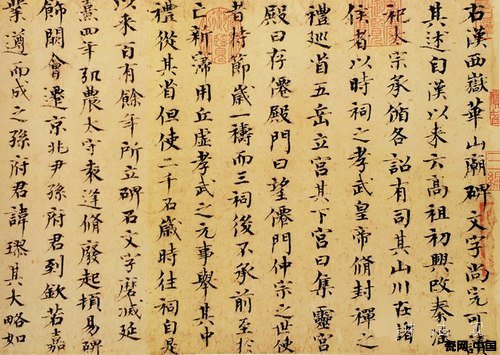 右漢西嶽華山廟碑文字尚完可讀
其述自漢以來云高祖初興改秦淫
祀太宗承循各詔有司其山川在諸
侯者以時祠之孝武皇帝脩封禪之
禮巡省五岳立宮其下宮曰集靈宮
殿曰存僊殿門曰望僊門仲宗之世使
者持節歲一禱而三祠後不承前至於
亡新寖用丘虛孝武之元事舉其中
禮從其省但使二千石歲時往祠自是
以來百有餘年所立碑石文字磨滅延
熹四年弘農太守袁逢脩廢起頓易碑
飾闕會遷京兆尹孫府君到欽若嘉
業遵而成之孫府君諱璆其大略如
瓷网.中国